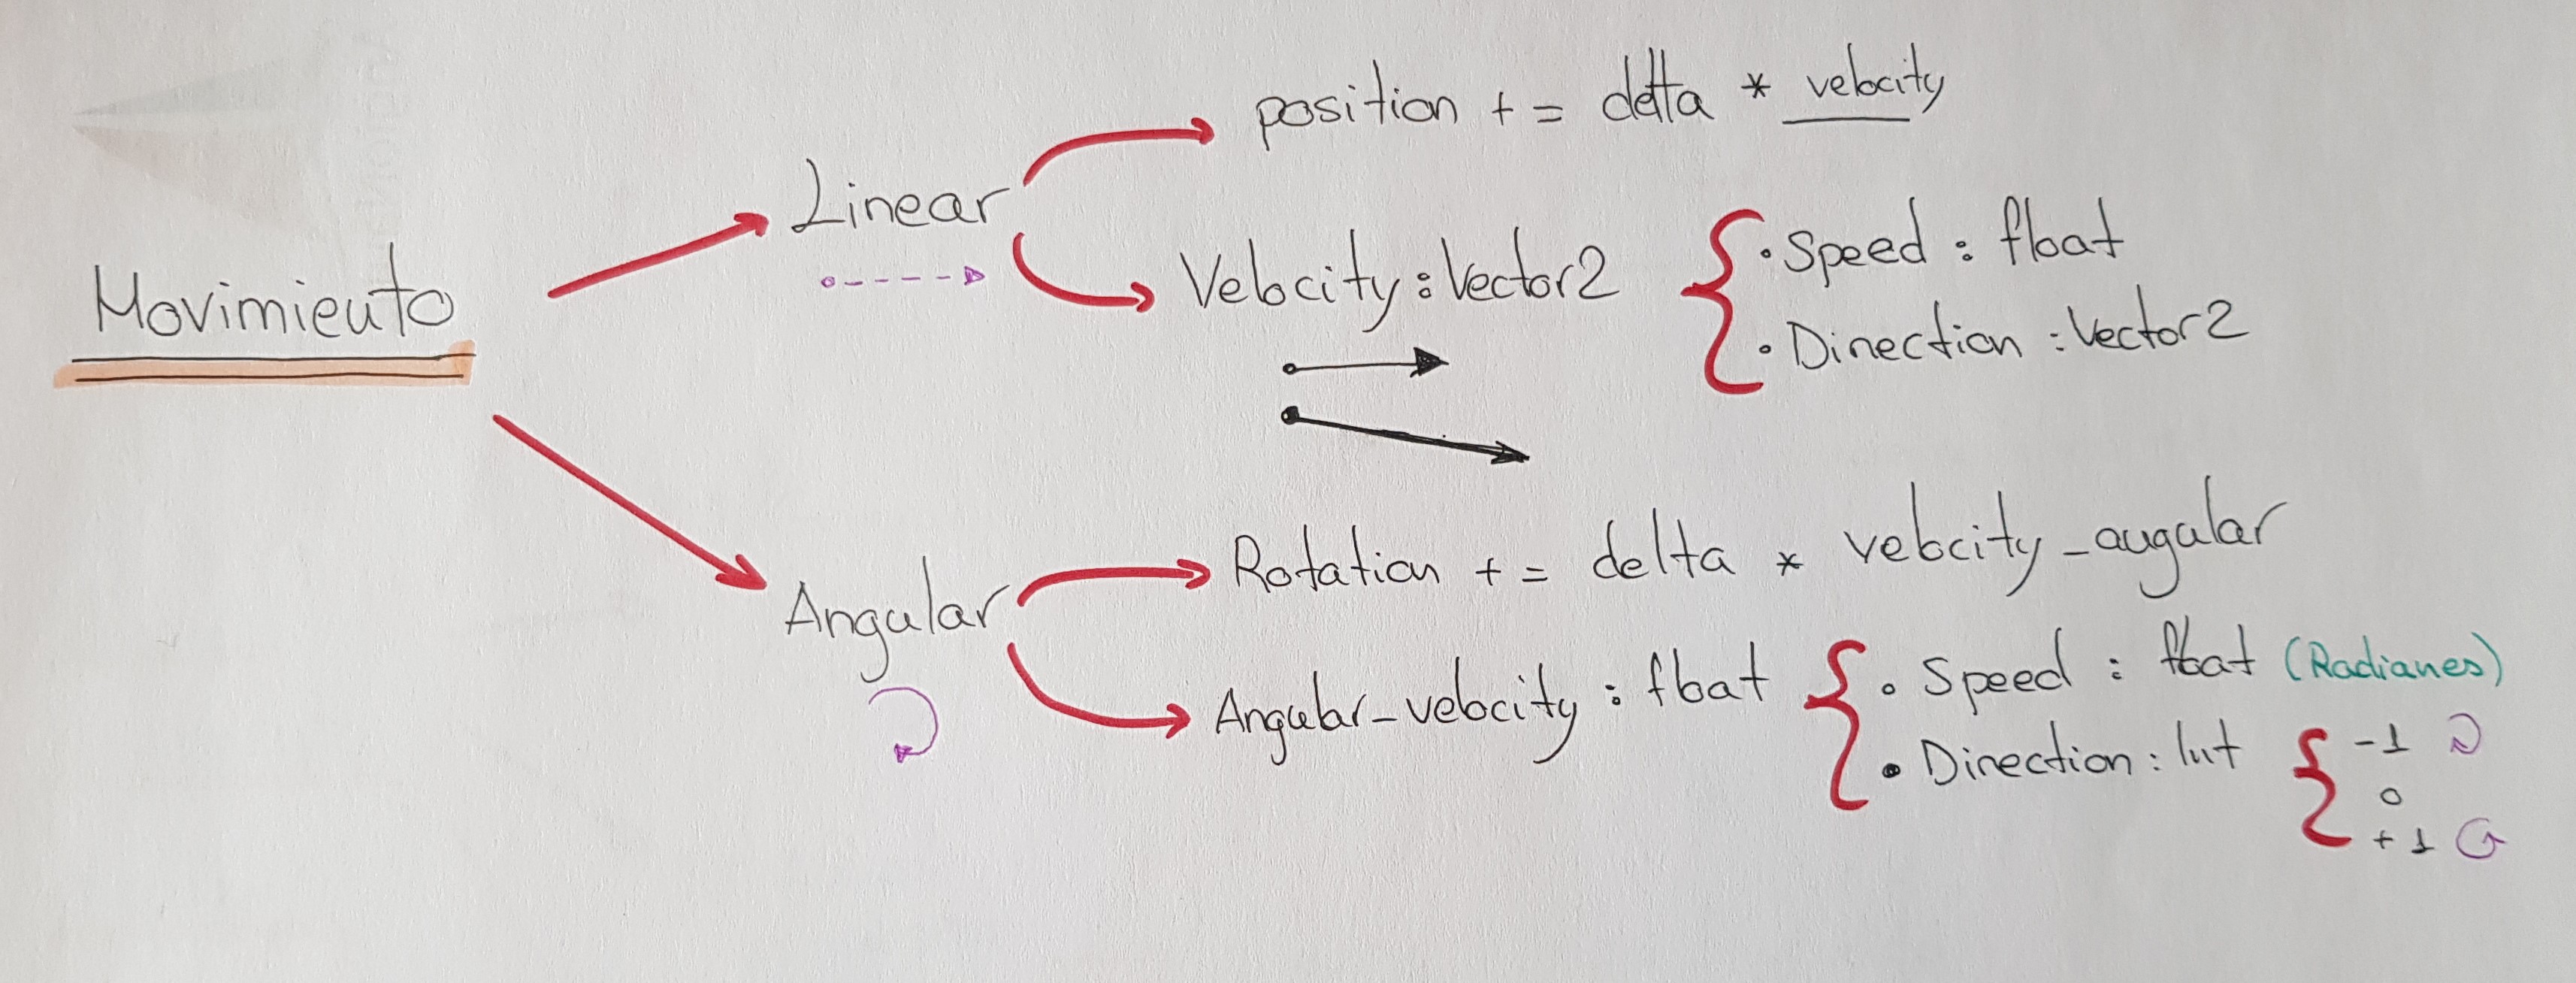 Movimiento
Linear
position += delta * velocity
Velocity : Vector2
• Speed : float
• Direction : Vector2
Angular
Rotation += delta * velocity_angular
Angular_velocity : float
• Speed : float (Radianes)
• Direction : Int
-1
0
+1